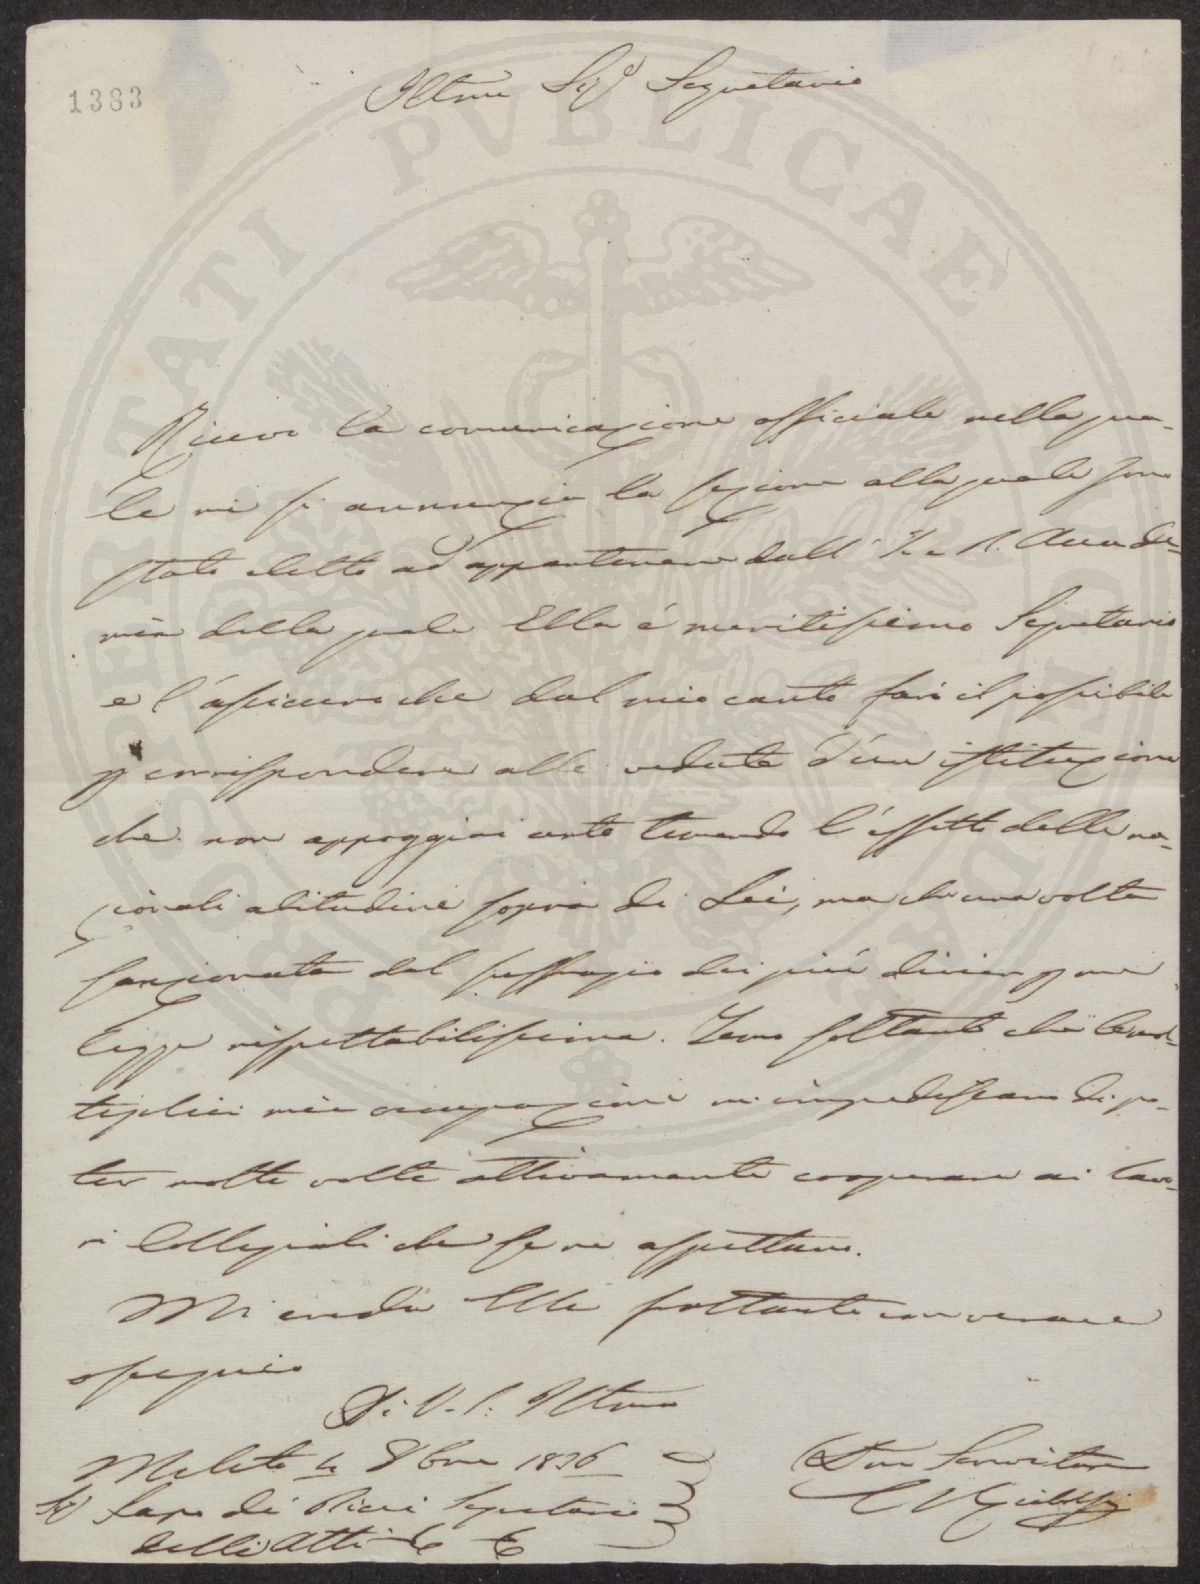 1383
Illmo Sigr Segretario
Ricevo la comunicazione officiale nella qua-
le mi si annunzia la sezione alla quale sono
stato eletto ad appartenere dall' I. e R. Accade-
mia della quale Ella é meritissimo Segretario
e l'assicuro che dal mio canto faró il possibile
p corrispondere alle vedute d'una istituzione
che non appoggiai certo temendo l'effetto delle na-
zionali abitudini sopra di Lei, ma che una volta
sanzionata dal suffragio dei piú divien p me
legge rispettabilissima. Temo soltanto che le mol-
teplici mie occupazioni m'impediscano di po-
ter molte volte attivamente cooperare ai lavo-
ri Collegiali che se ne aspettano.
Mi creda Ella frattanto con verace
ossequio
Di V. S. Illma
Meleto 4 8bre 1836
Dvo Servitore
Sigr Lapo de Ricci Segretario
C Ridolfi
delli Atti &c &c
PROSPERITATI PVBLICAE AVGENDAE